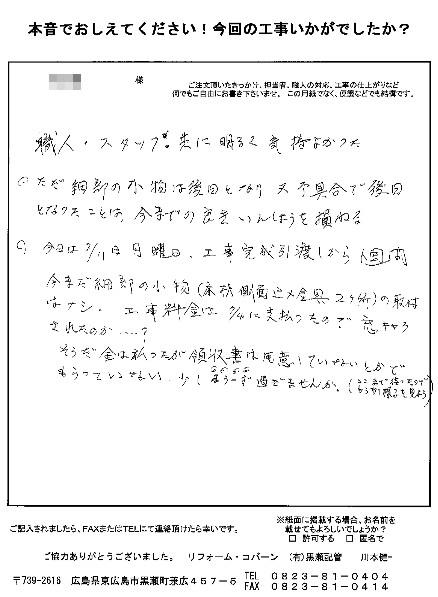 本音でおしえてください！今回の工事いかがでしたか？
様
ご注文頂いたきっかけ、担当者、職人の対応、工事の仕上がりなど
何でもご自由にお書き下さいませ。この用紙でなく、便箋などでも結構です。
職人・スタッフ共に明るく気持よかった
ただ細部の小物は後日となり 又不具合で後日
となったことは、今までの良きいんしょうを損ねる
今日は 月曜日、工事完成引渡しから1週間
今まだ細部の小物(金具 2ヶ所)の取付
はナシ、工事料金は 支払ったので
されたのか……?
そうだ金は払ったが領収書は用意していないとかで
もらっていない、少しずさん過ぎませんか。
※紙面に掲載する場合、お名前を
載せてもよろしいでしょうか？
ご記入されましたら、FAXまたはTELにて連絡頂けたら幸いです。
□ 許可する □ 匿名で
ご協力ありがとうございました。 リフォーム・コバーン （有）黒瀬配管 川本健一
〒739-2616 広島県東広島市黒瀬町兼広457-5 TEL 0823-81-0404
FAX 0823-81-0414